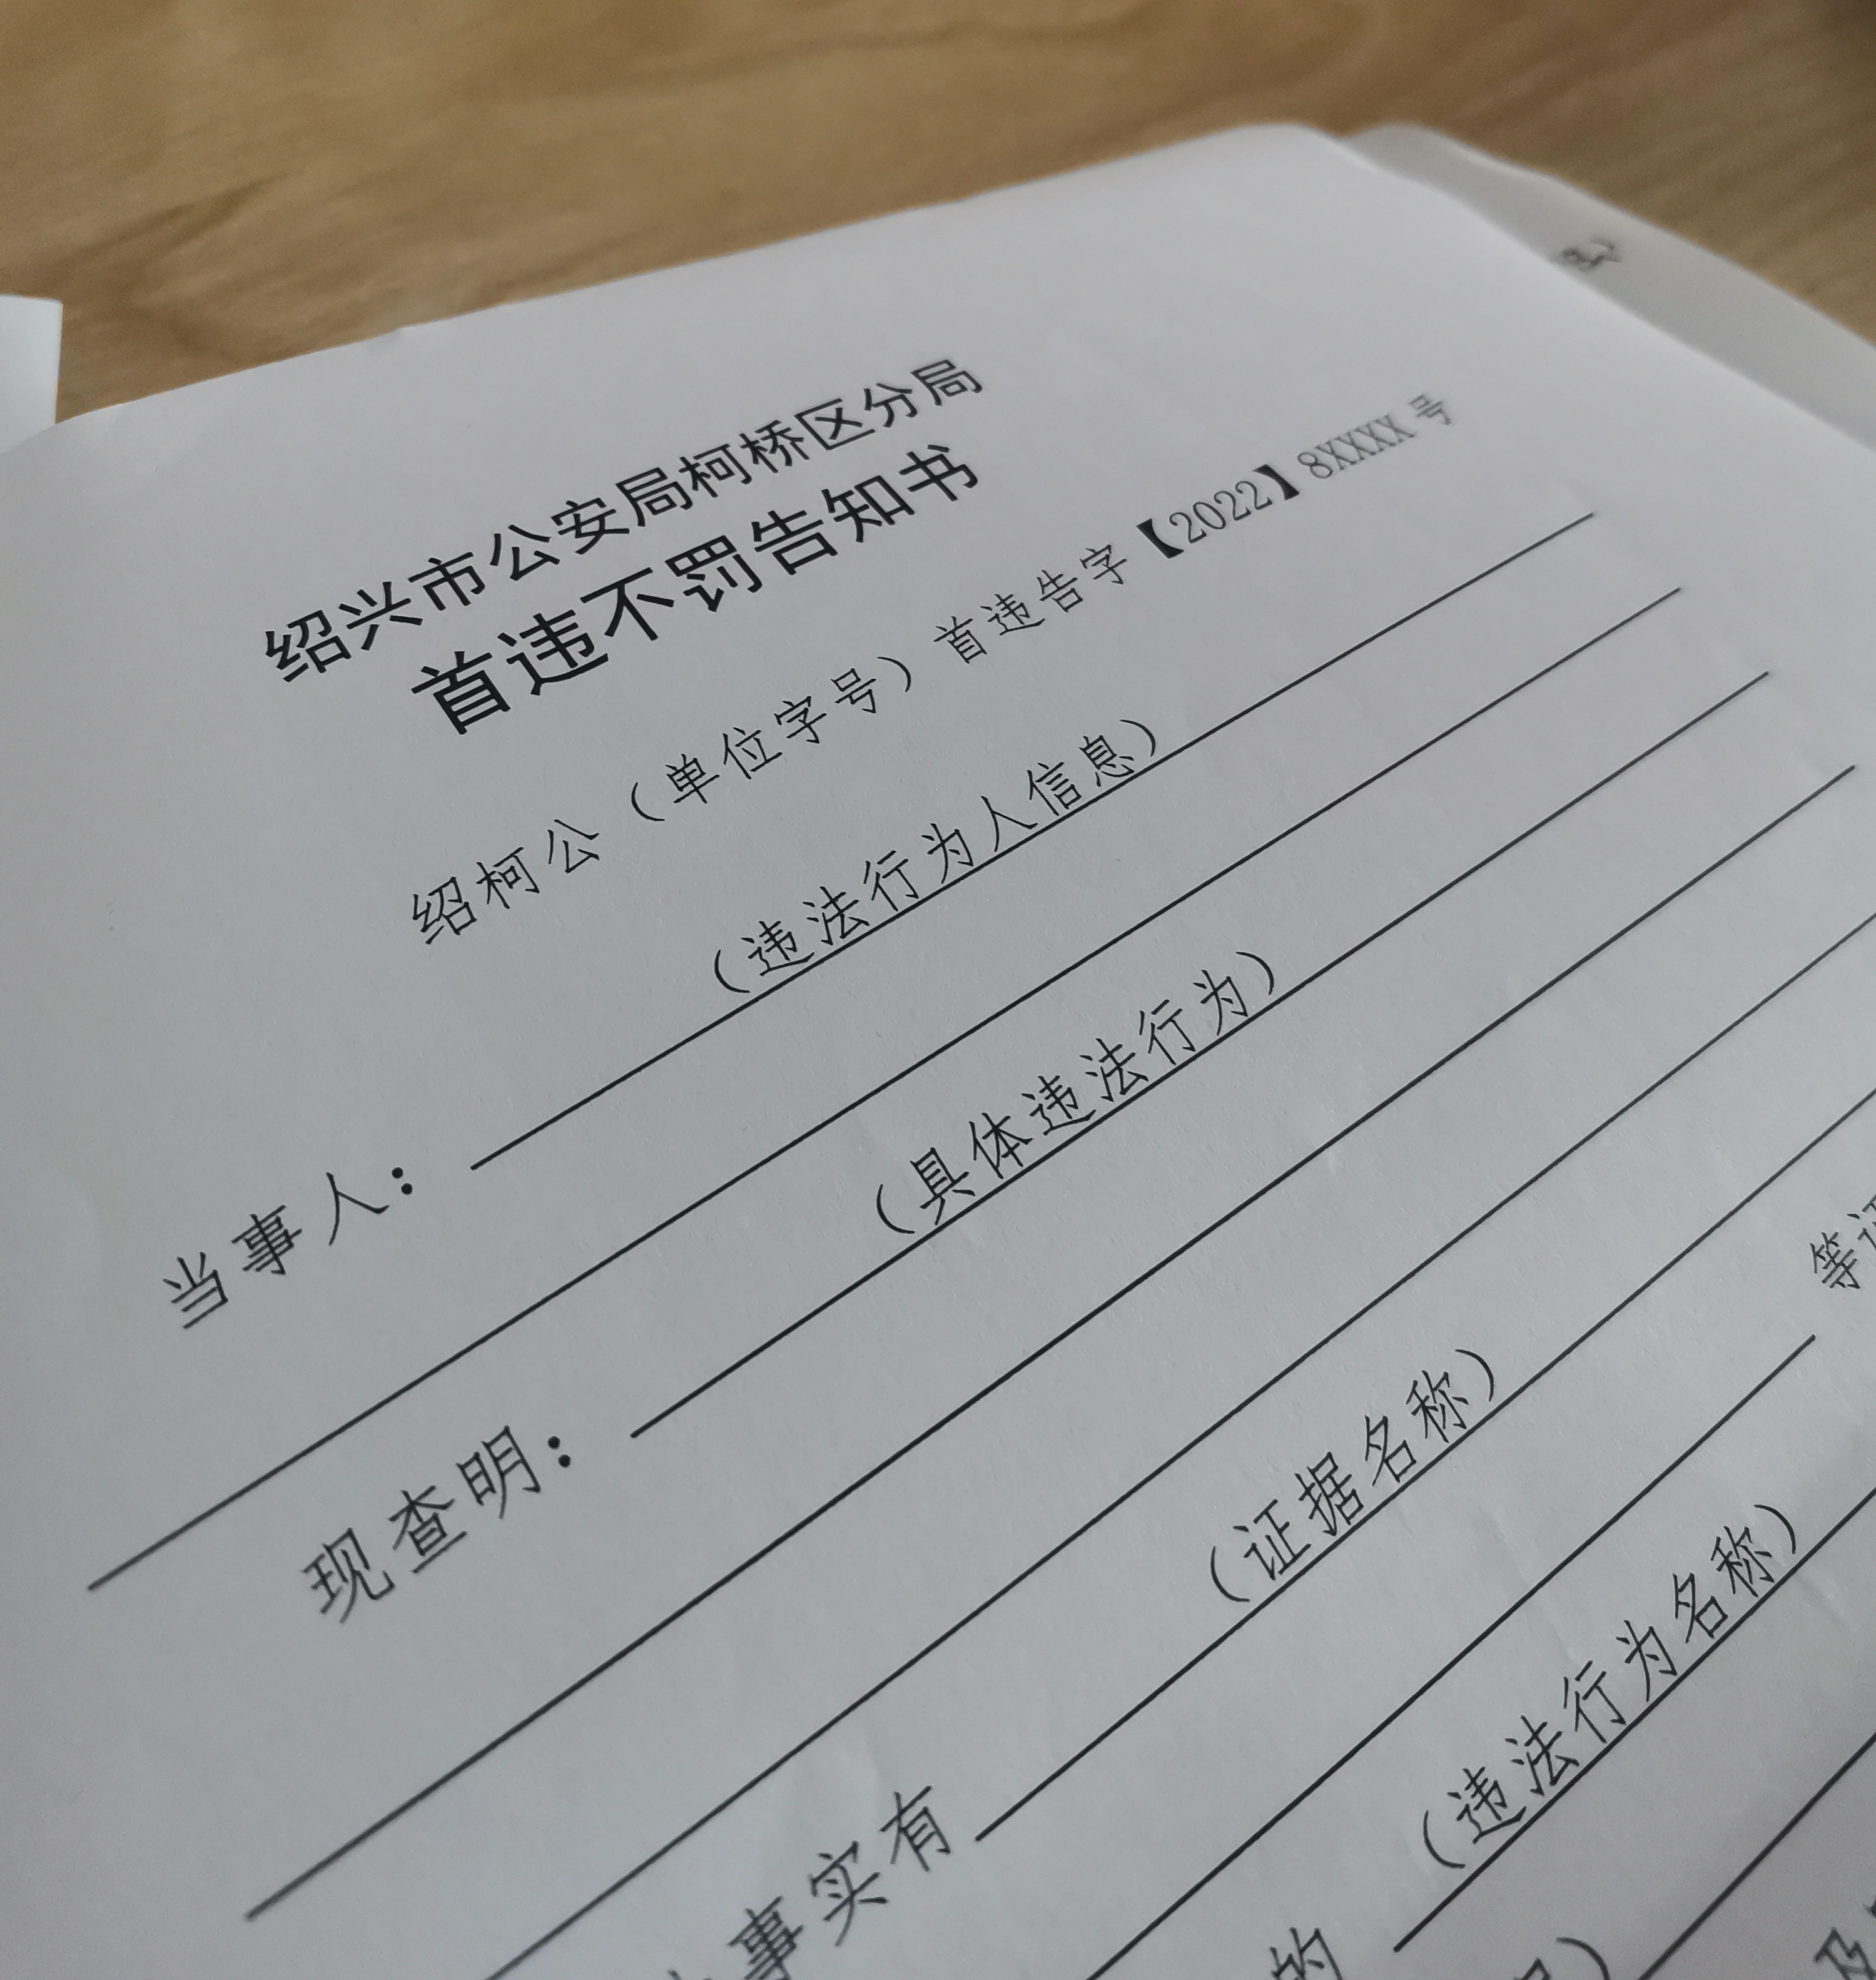 绍兴市公安局柯桥区分局
首违不罚告知书
绍柯公（单位字号）首违告字【2022】8XXXX 号
当事人：（违法行为人信息）
现查明：（具体违法行为）
事实有（证据名称）等证
的（违法行为名称）及